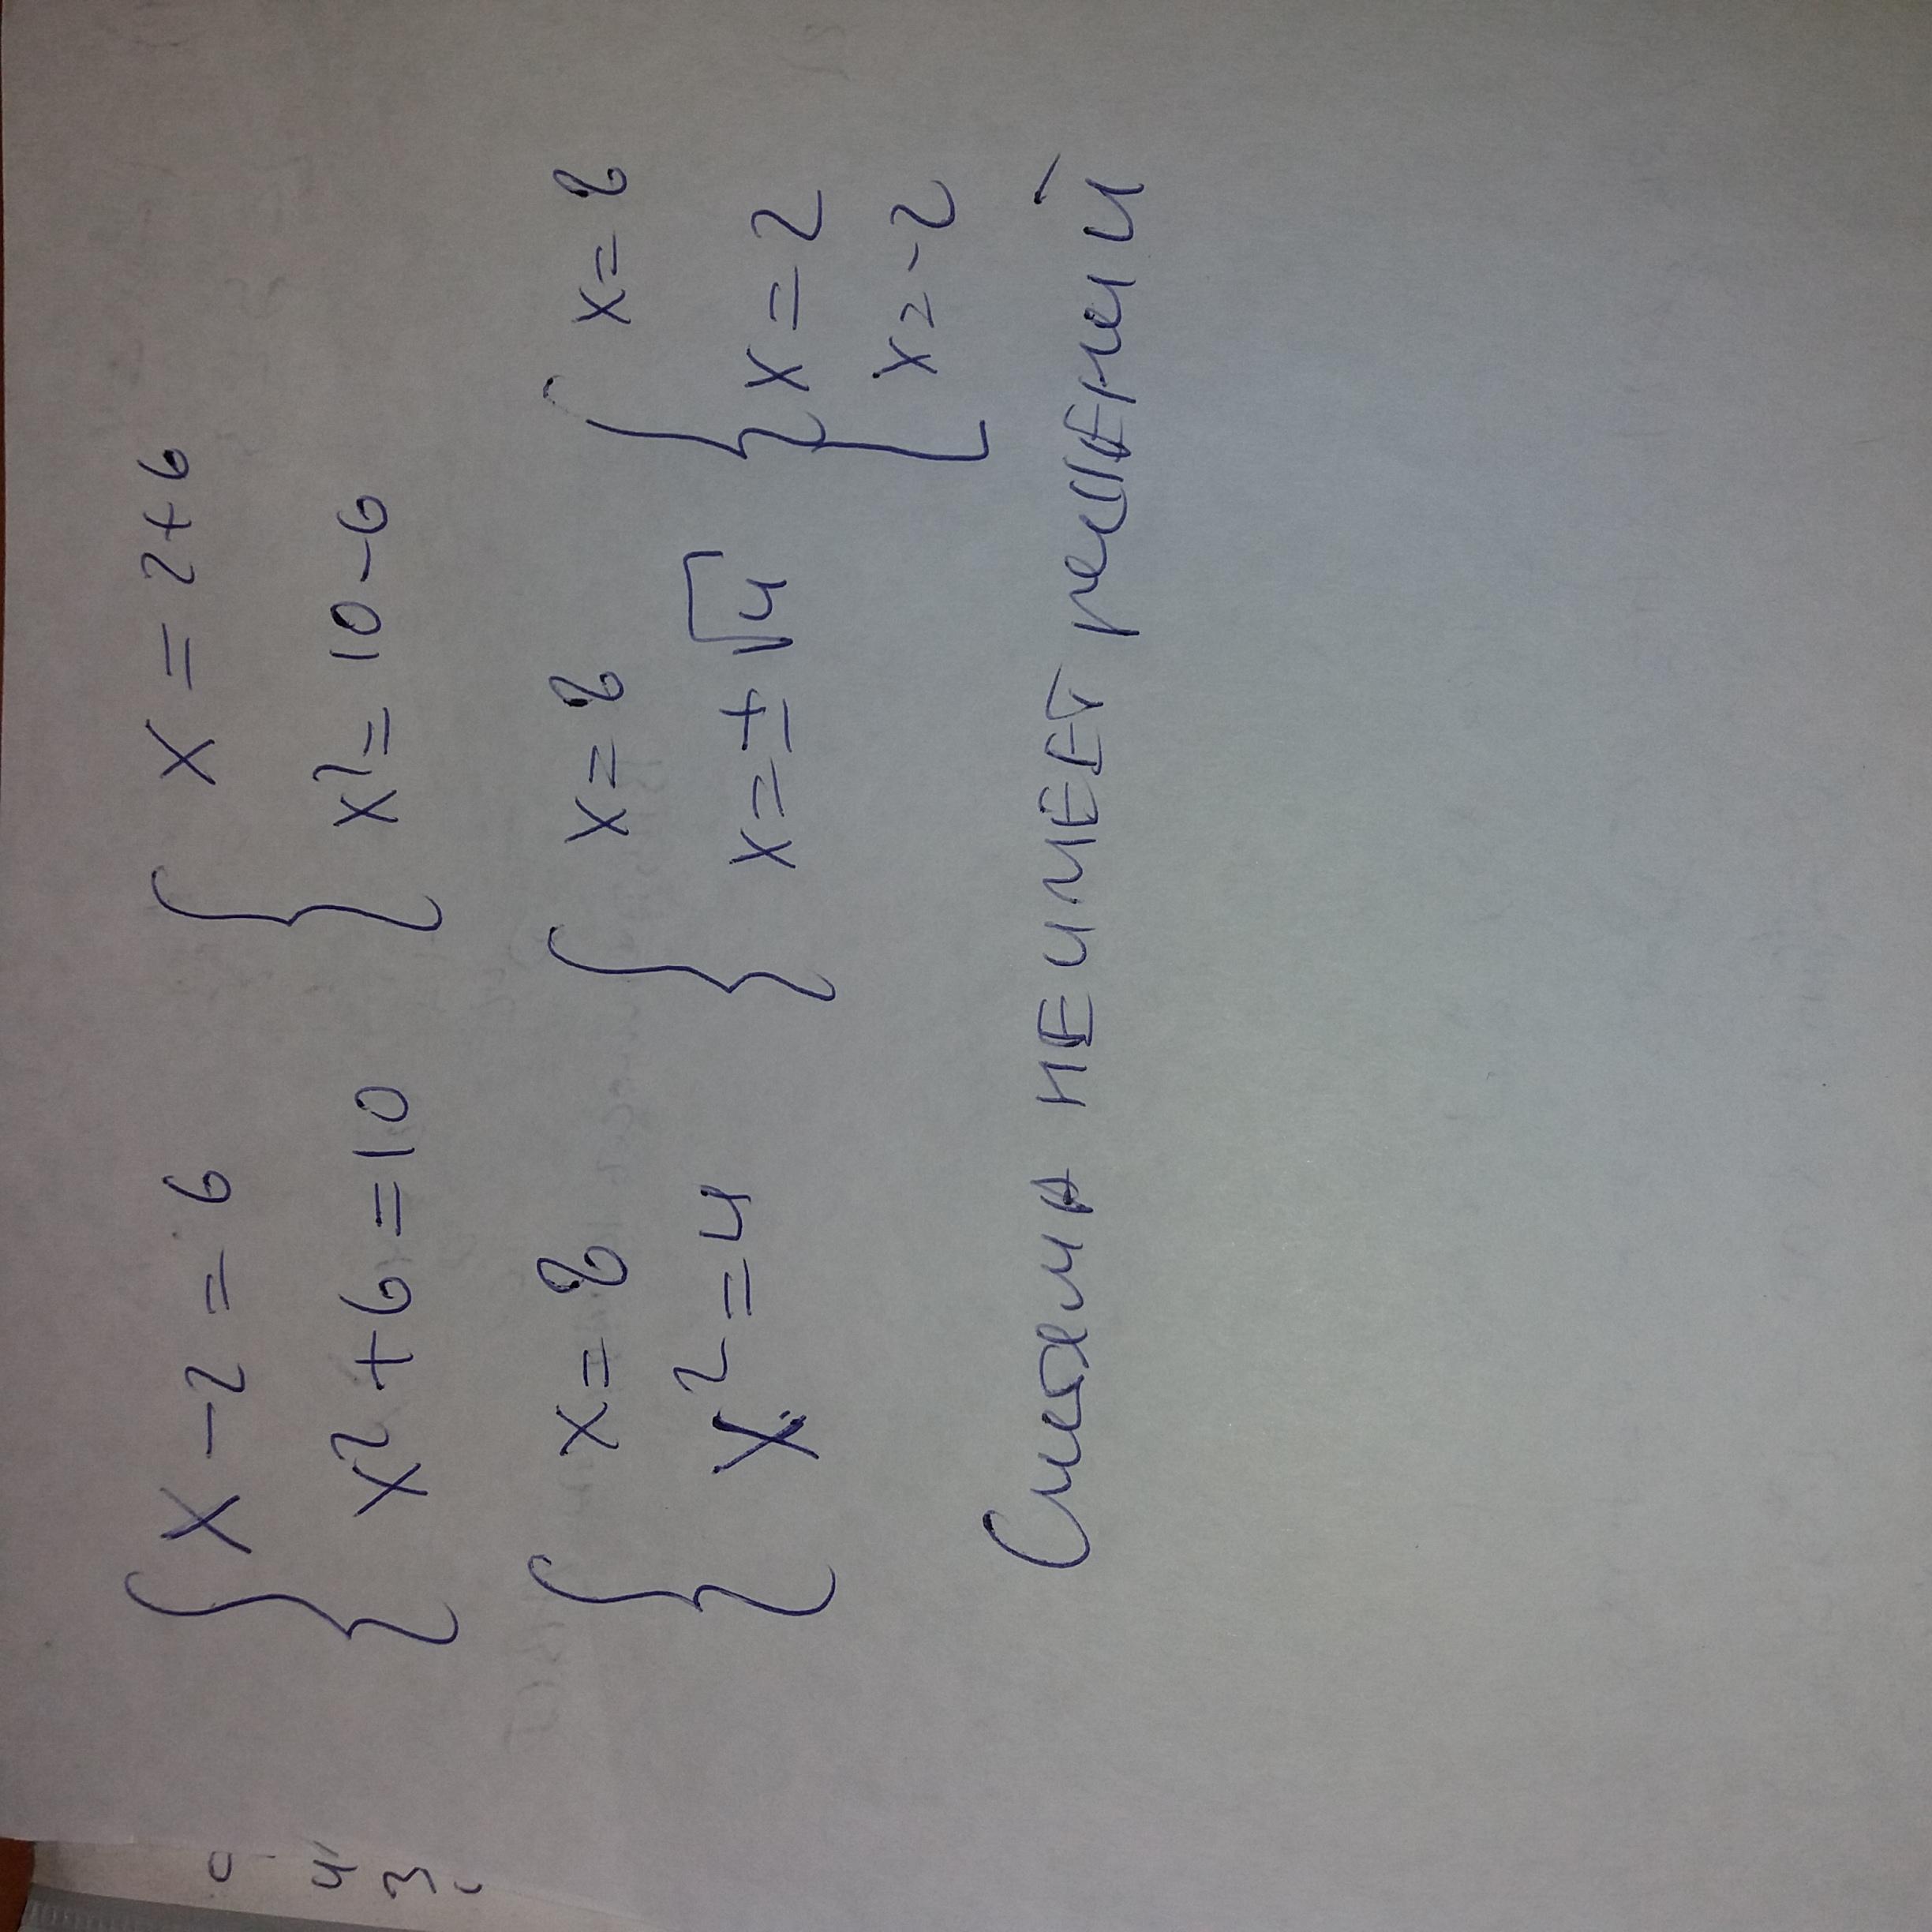 { x - 2 = 6 { x = 2 + 6
x² + 6 = 10 x² = 10 - 6
{ x = 8 { x = 8 { x = 8
x² = 4 x = ±√4 [ x = 2
x = -2
Система не имеет решений